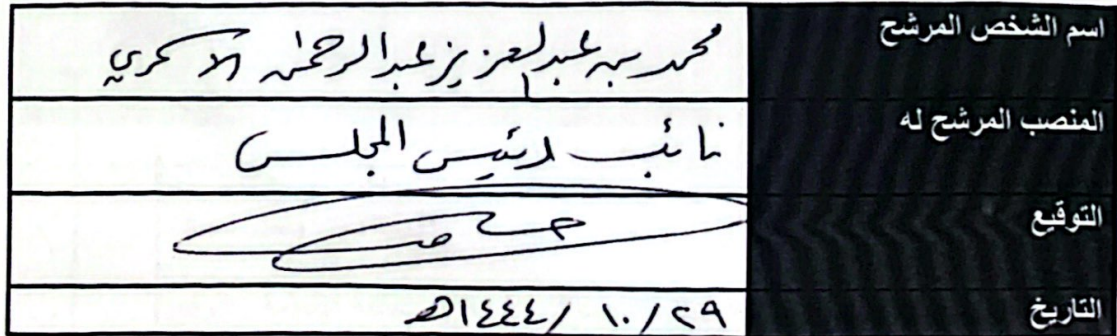 اسم الشخص المرشح محمد بن عبدالعزيز عبدالرحمن
المنصب المرشح له نائب رئيس المجلس
التوقيع
التاريخ ٢٩/ ١٠/ ١٤٤٤هـ